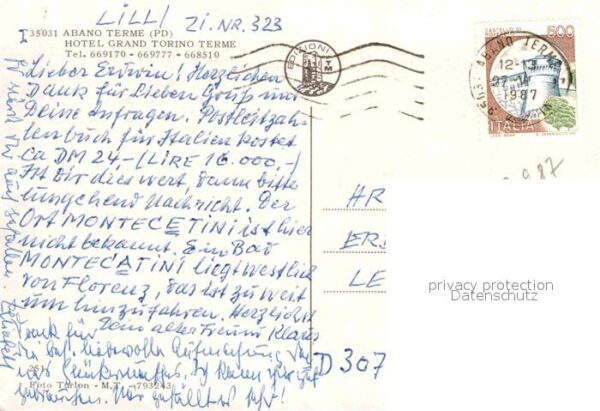 LILLI ZI.NR.323
I 35031 ABANO TERME (PD)
HOTEL GRAND TORINO TERME
Tel. 669170 - 669777 - 668510
Lieber Erwin! Herzlichen
Dank für Lieben Gruß und
Deine Anfragen. Postleitzah-
lenbuch für Italien kostet
ca DM 24-(LIRE 16.000,-)
Ist Dir dies wert, dann bitte
umgehend Nachricht. Der
Ort MONTECETINI ist hier
nicht bekannt. Ein Bad
MONTECATINI liegt westlich
von Florenz, das ist zu weit
um hinzufahren. Herzlichst
Dein alter Freund Klaus
Dank für
liebevolle
Ich kann sehr gut
gebrauchen. gefällt sehr!
Foto Turlon - M.T. - 793243
EDIZIONI
TM
500
ABANO TERME
12-13
1987
ITALIA
987
HR
ERS
LE
D 307
privacy protection
Datenschutz